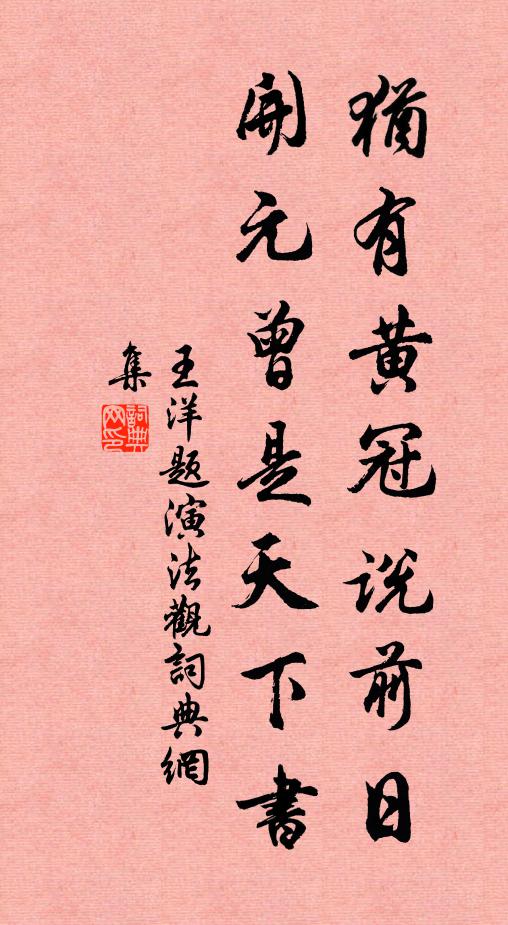 猶有黃冠說前日
開元曾是天下書
王洋題演法觀詞典網
集
詞典網印